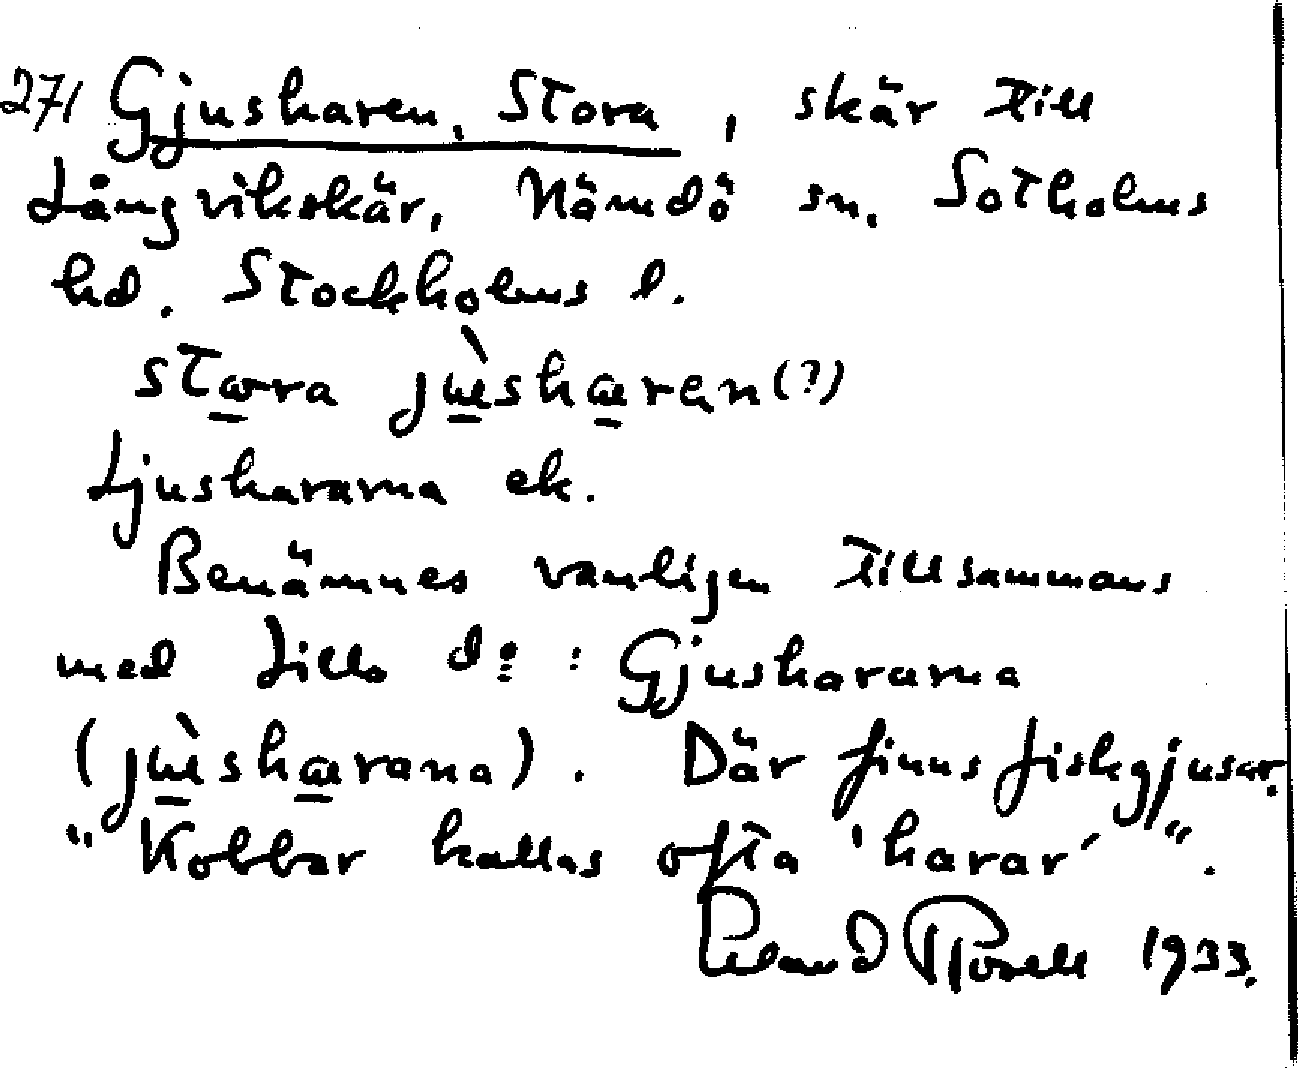 271 Gjusharen, Stora, skär till
Långviksskär, Nämdö sn. Sotholms
hd. Stockholms l.
stωra jùsharen (?)
Ljushararna ek.
Benämnes vanligen tillsammans
med Lilla d:o : Gjushararna
(jùsharana). Där finns fiskgjusar.
"Kobbar kallas ofta 'harar'".
1933.